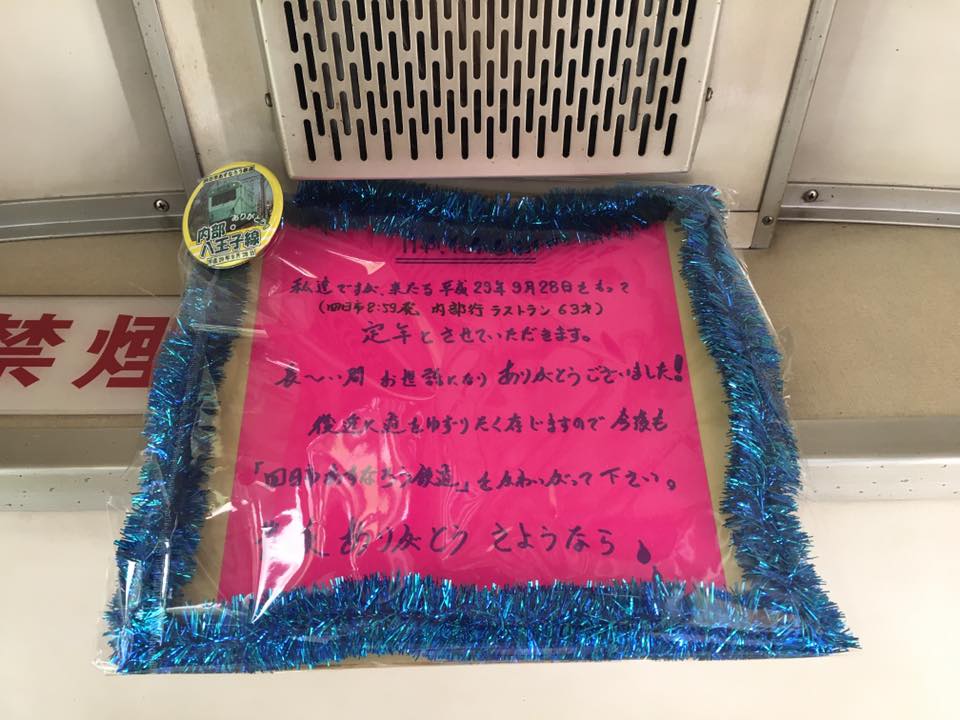 ありがとう
内部・
八王子線
禁煙
私達ですが、来たる平成29年9月28日をもって
(四日市8:59発 内部行 ラストラン 63才)
定年とさせていただきます。
長〜い間 お世話になり ありがとうございました!
後進に道をゆずりたく存じますので 今後も
「四日市あすなろう鉄道」をかわいがって下さい。
ありがとう さようなら